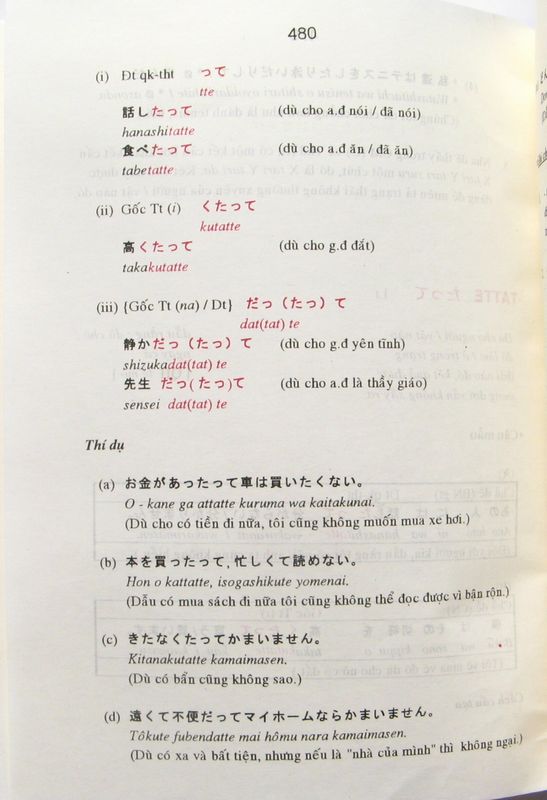 480
(i) Đt qk-tht って
tte
話したって (dù cho a.đ nói / đã nói)
hanashitatte
食べたって (dù cho a.đ ăn / đã ăn)
tabetatte
(ii) Gốc Tt (i) くたって
kutatte
高くたって (dù cho g.đ đắt)
takakutatte
(iii) {Gốc Tt (na) / Dt} だっ（たっ）て
dat(tat) te
静かだっ（たっ）て (dù cho g.đ yên tĩnh)
shizukadat(tat) te
先生 だっ(たっ)て (dù cho a.đ là thầy giáo)
sensei dat(tat) te
Thí dụ
(a) お金があったって車は買いたくない。
O - kane ga attatte kuruma wa kaitakunai.
(Dù cho có tiền đi nữa, tôi cũng không muốn mua xe hơi.)
(b) 本を買ったって, 忙しくて読めない。
Hon o kattatte, isogashikute yomenai.
(Dẫu có mua sách đi nữa tôi cũng không thể đọc được vì bận rộn.)
(c) きたなくたってかまいません。
Kitanakutatte kamaimasen.
(Dù có bẩn cũng không sao.)
(d) 遠くて不便だってマイホームならかまいません。
Tôkute fubendatte mai hômu nara kamaimasen.
(Dù có xa và bất tiện, nhưng nếu là "nhà của mình" thì không ngại.)